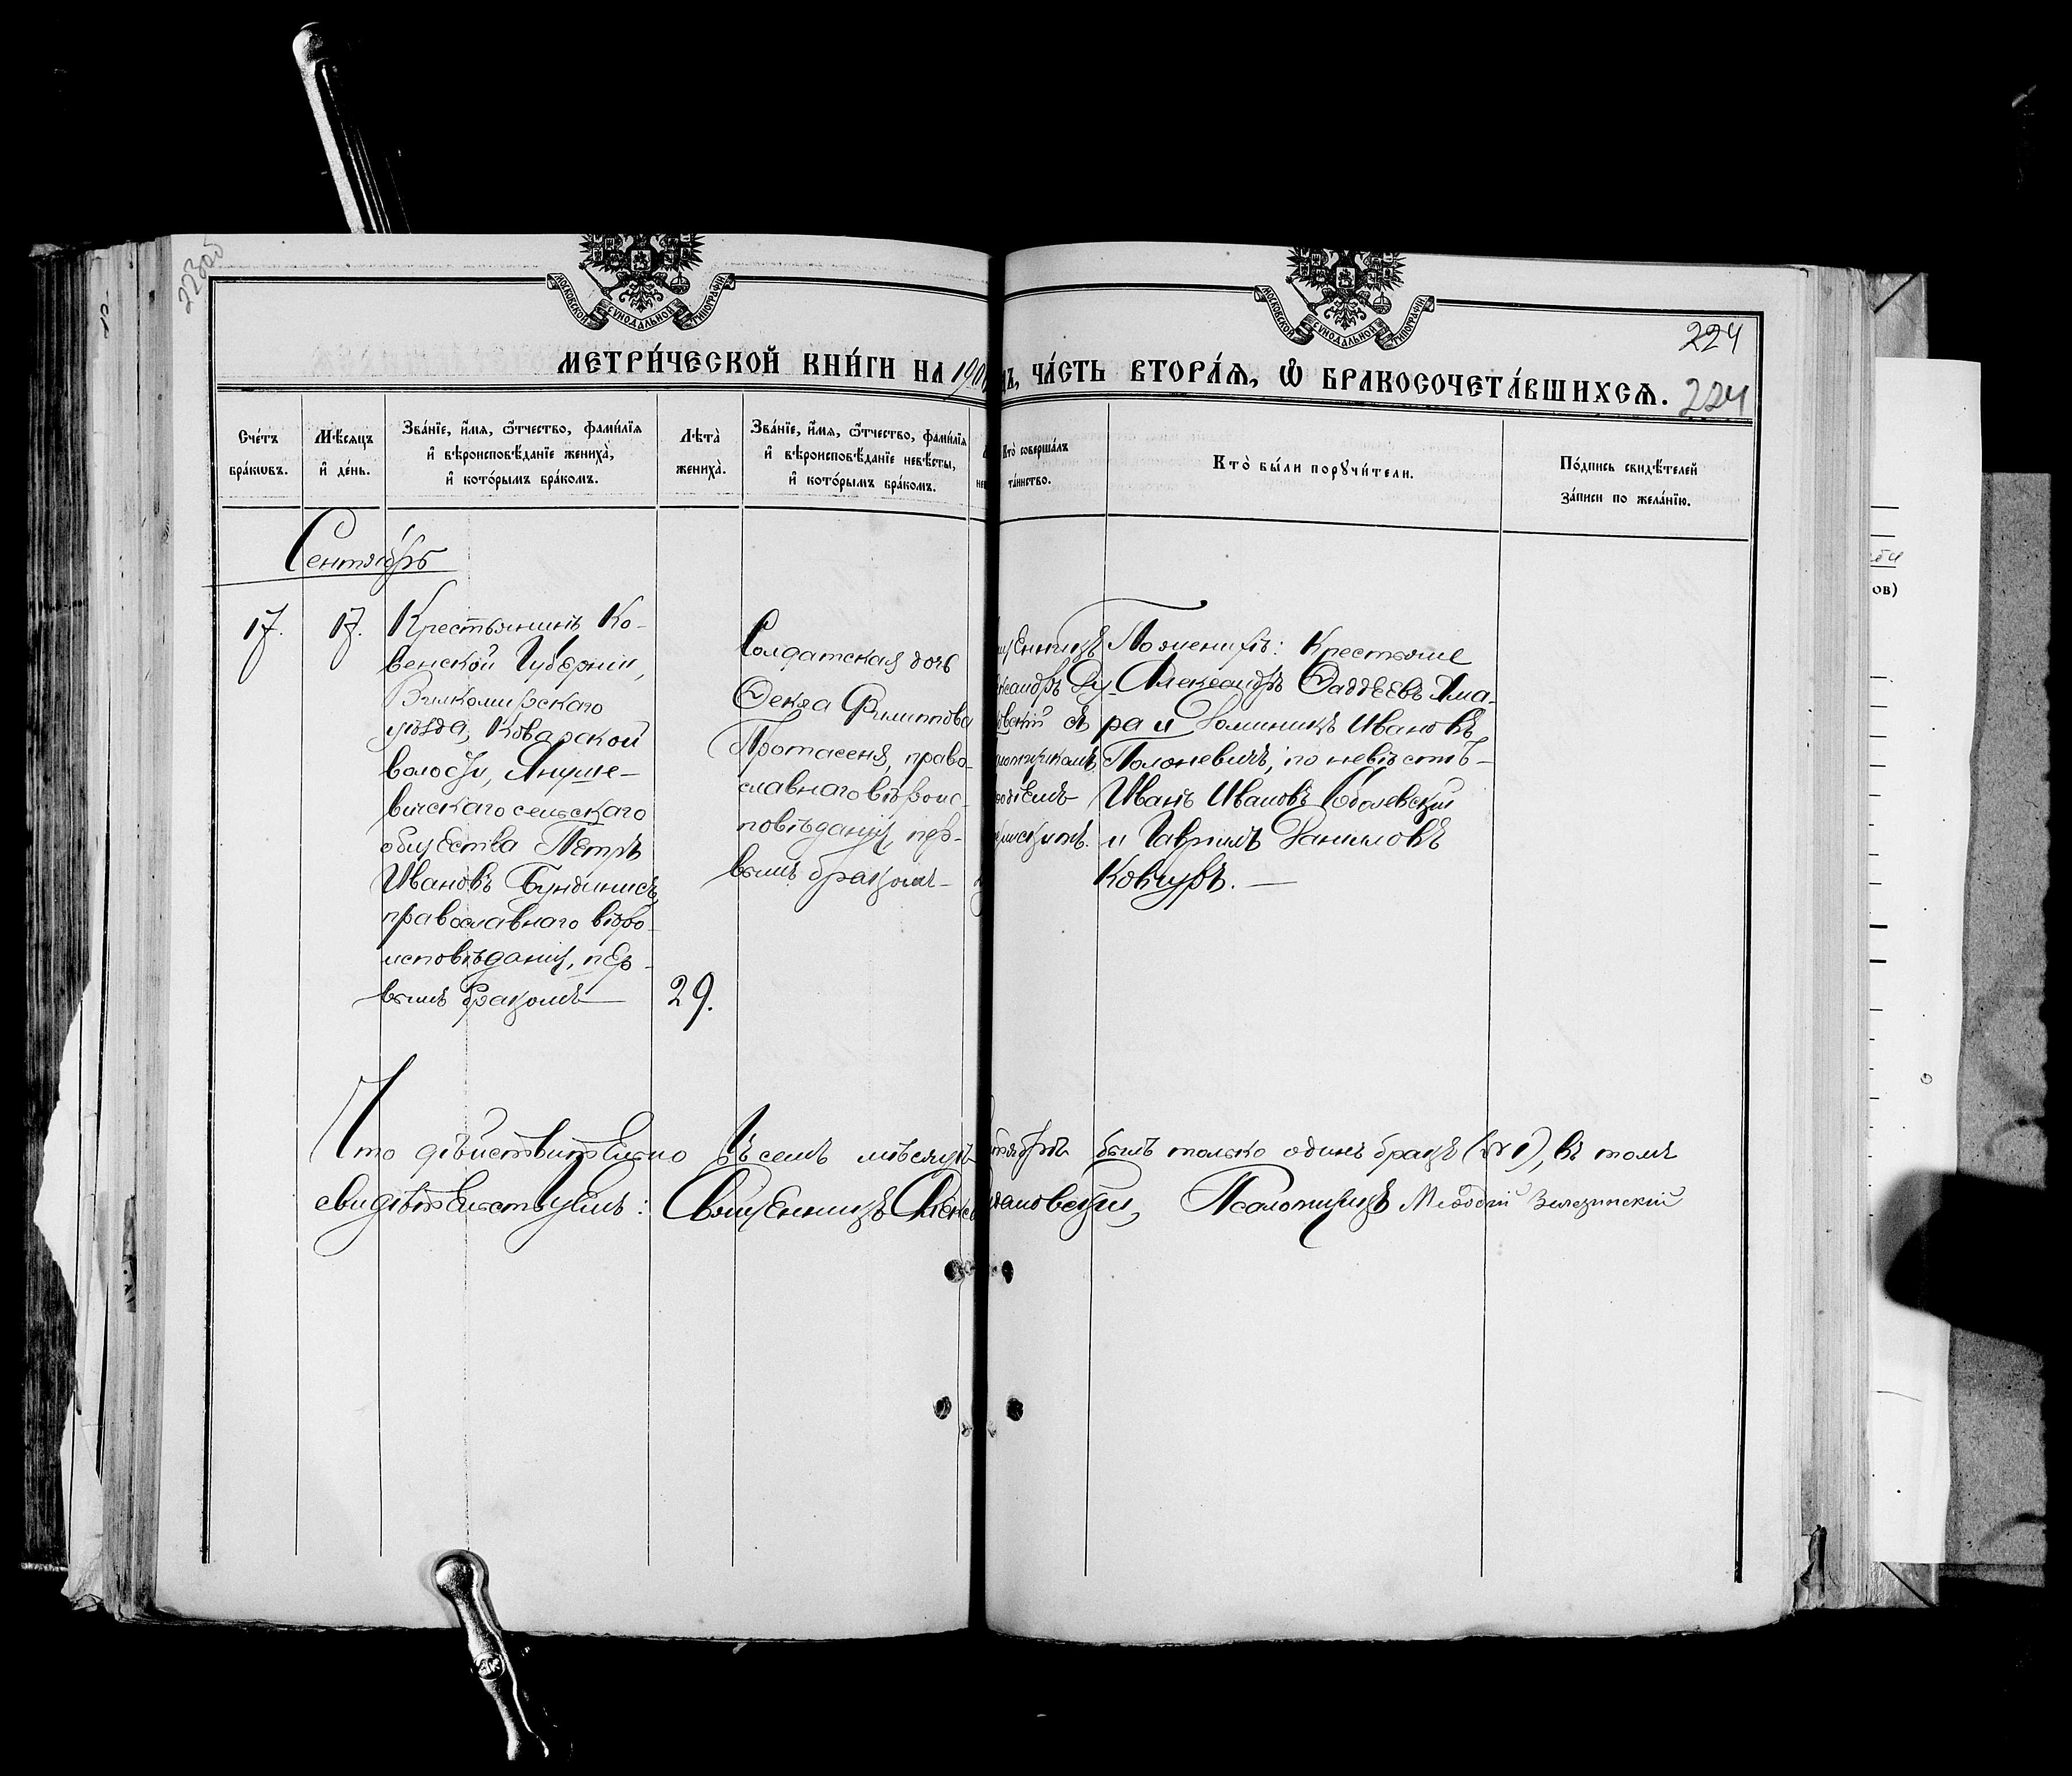 МОСКОВСКОЙ СѴНОДАЛЬНОЙ ТИПОГРАФІИ
МОСКОВСКОЙ СѴНОДАЛЬНОЙ ТИПОГРАФІИ
224
МЕТРИ́ЧЕСКОЙ КНИ́ГИ НА 190
ЧА́СТЬ ВТОРА́Ѧ, Ѽ БРАКОСОЧЕТА́ВШИХСѦ.
224
Сче́тъ бра́кѡвъ.
Мѣ́сяцъ и҆ де́нь.
Зва́нїе, и҆́мя, ѻ҆́тчество, фами́лїя
и҆ вѣроисповѣ́данїе жениха̀,
и҆ кото́рымъ бра́комъ.
Лѣта̀ жениха̀.
Зва́нїе, и҆́мя, ѻ҆́тчество, фами́лїя
и҆ вѣроисповѣ́данїе невѣ́сты,
и҆ кото́рымъ бра́комъ.
Кто̀ соверша́лъ
та́инство.
Кто̀ бы́ли порꙋчи́тели.
По́дпись свидѣ́телей
за́писи по жела́нїю.
Сентябрь
17.
17.
Крестьянинъ Ко-
венской Губерніи,
Вилкомирскаго
уѣзда, Коварской
волости, Януше-
вскаго сельскаго
общества Петръ
Ивановъ
православнаго вѣро-
исповѣданія, пер-
вымъ бракомъ
29.
Солдатская дочь
Ѳекла Филиппова
Протасеня, право-
славнаго вѣроис-
повѣданія, пер-
вымъ бракомъ
По женихѣ: Крестьяне
Александръ Ѳаддеевъ Яма-
ра и Доминикъ Ивановъ
Полоневичъ; по невѣстѣ-
Иванъ Ивановъ Соболевскій
и Гавріилъ Даниловъ
Ковчуръ.
Что дѣйствительно въ семъ мѣсяцѣ былъ только одинъ бракъ (№ 1), въ томъ
свидѣтельствуемъ: Священникъ Псаломщикъ Меѳодій
ов)